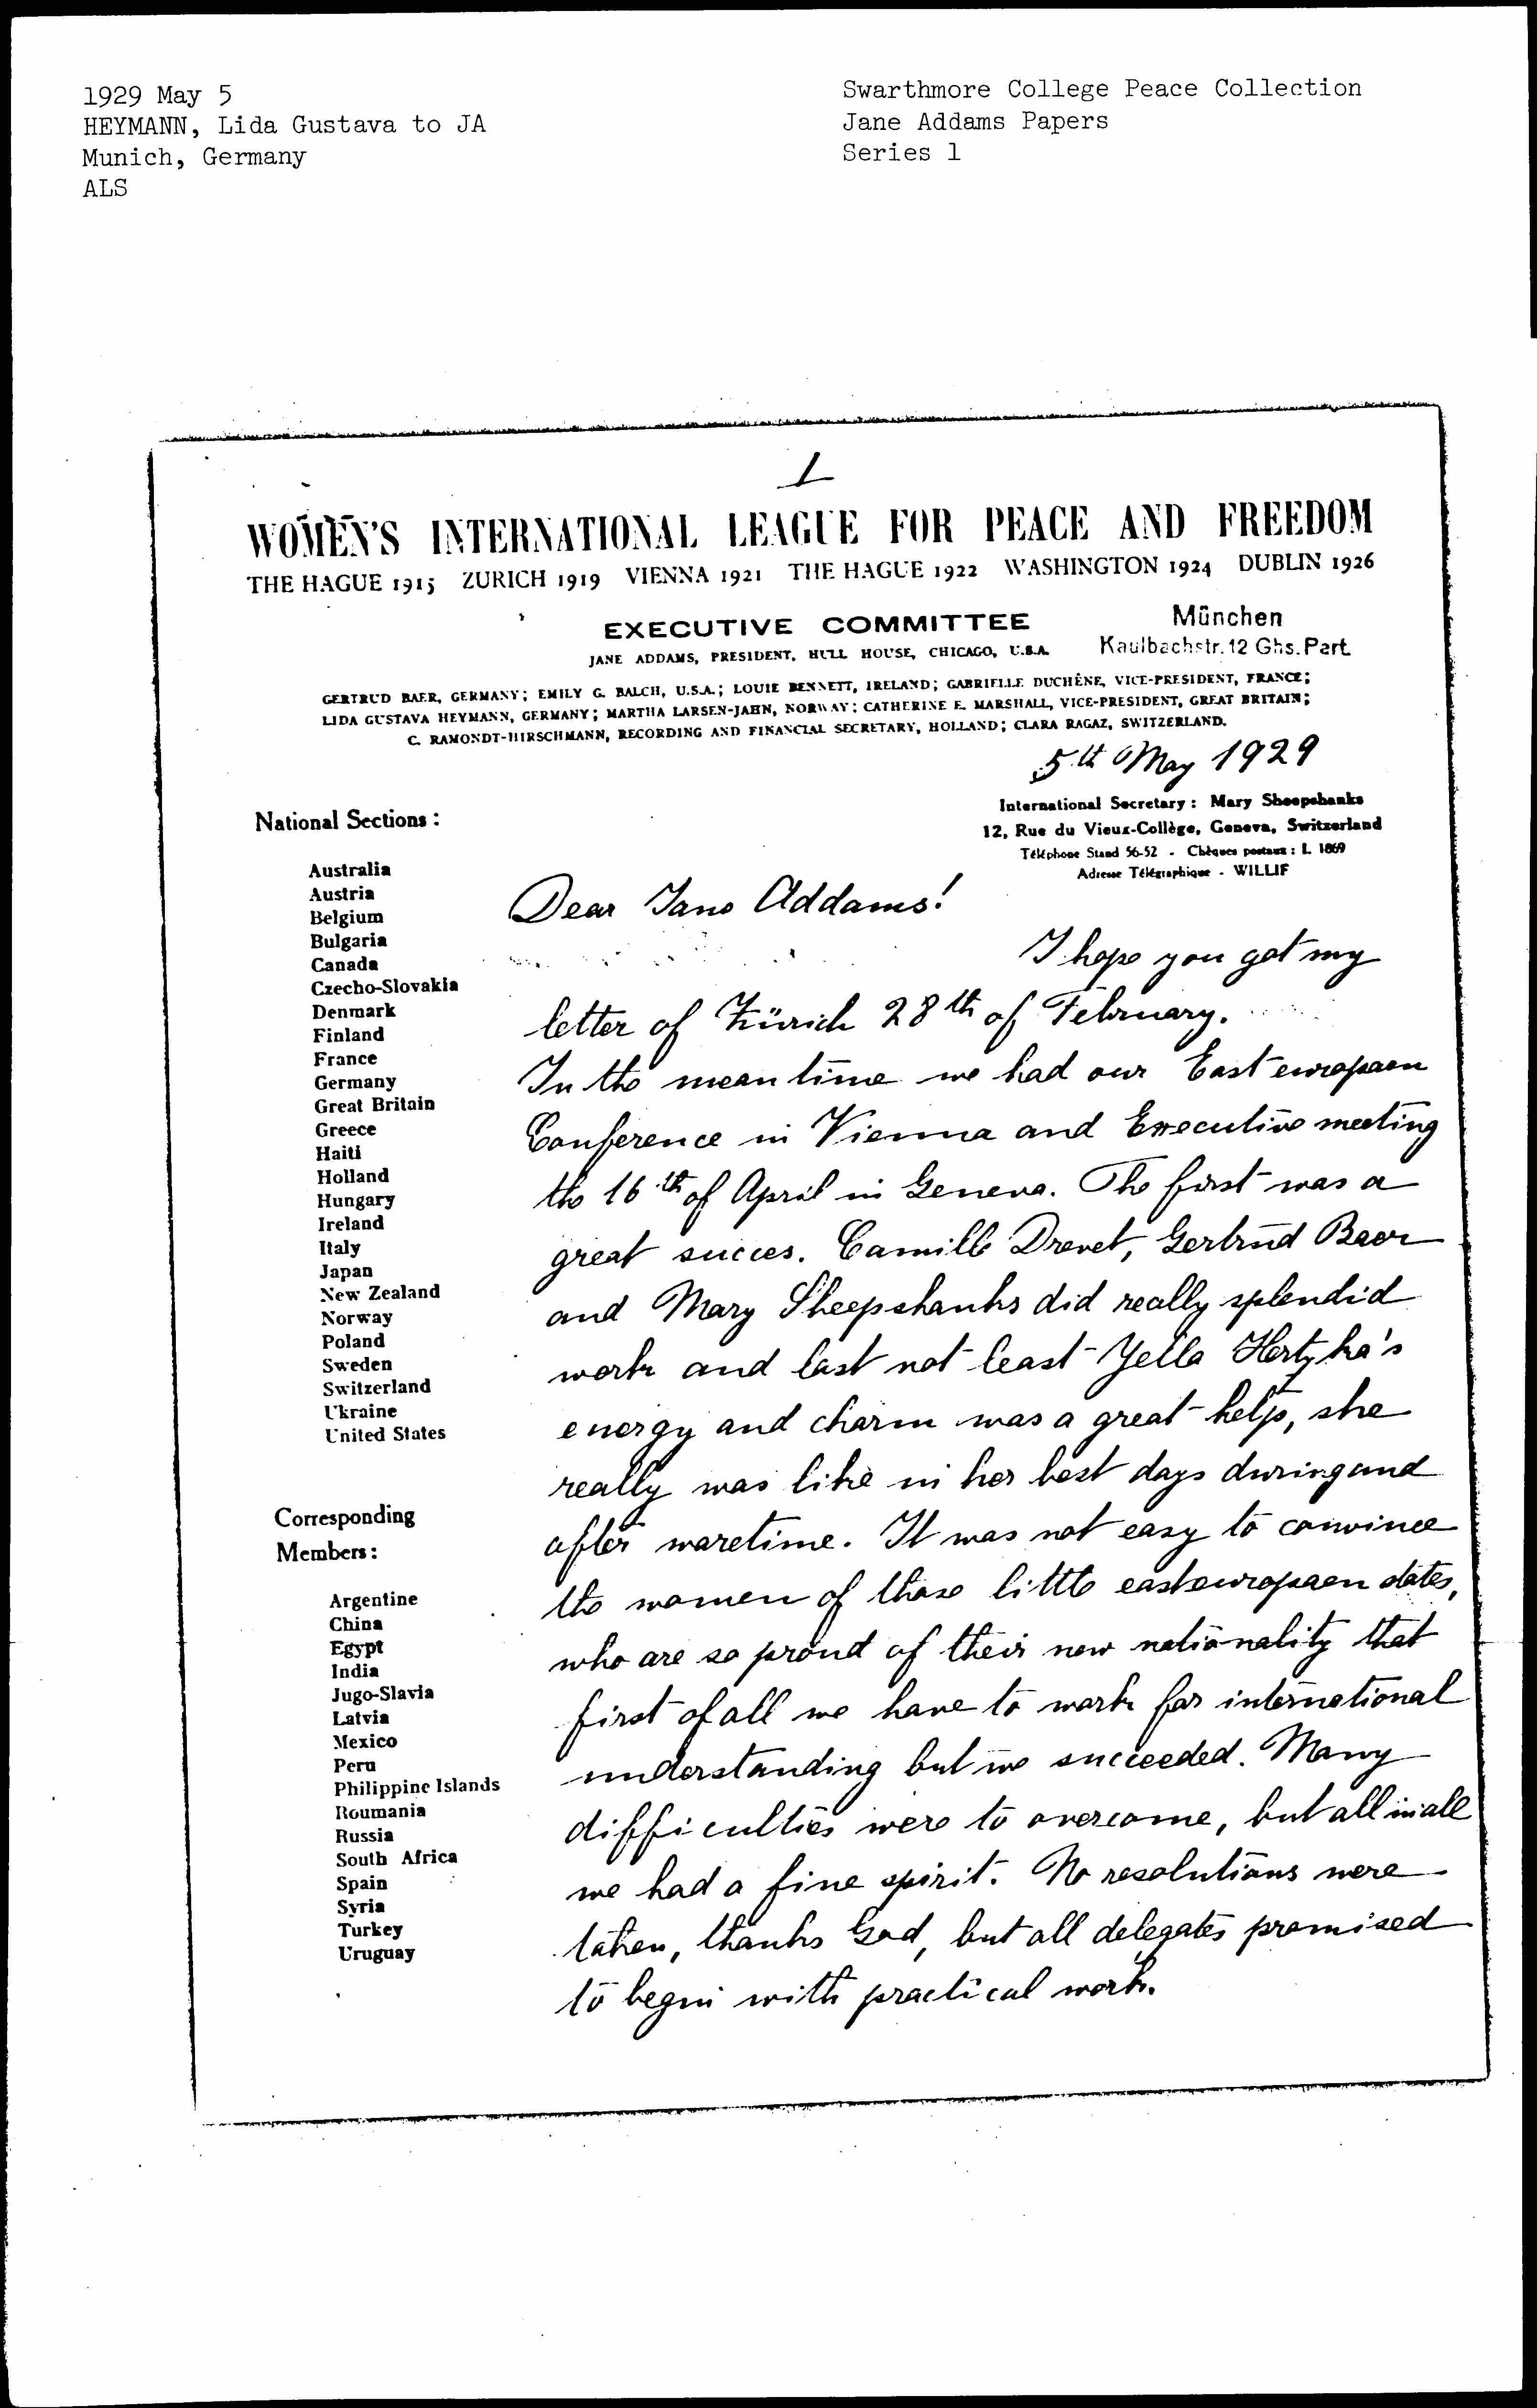 1929 May 5
HEYMANN, Lida Gustava to JA
Munich, Germany
ALS
Swarthmore College Peace Collection
Jane Addams Papers
Series 1
1
WOMEN'S INTERNATIONAL LEAGUE FOR PEACE AND FREEDOM
THE HAGUE 1915 ZURICH 1919 VIENNA 1921 THE HAGUE 1922 WASHINGTON 1924 DUBLIN 1926
EXECUTIVE COMMITTEE
JANE ADDAMS, PRESIDENT, HULL HOUSE, CHICAGO, U.S.A.
München
Kaulbachstr. 12 Ghs. Part.
GERTRUD BAER, GERMANY; EMILY G. BALCH, U.S.A.; LOUIE BENNETT, IRELAND; GABRIELLE DUCHÊNE, VICE-PRESIDENT, FRANCE;
LIDA GUSTAVA HEYMANN, GERMANY; MARTHA LARSEN-JAHN, NORWAY; CATHERINE E. MARSHALL, VICE-PRESIDENT, GREAT BRITAIN;
C. RAMONDT-HIRSCHMANN, RECORDING AND FINANCIAL SECRETARY, HOLLAND; CLARA RAGAZ, SWITZERLAND.
5th May 1929
International Secretary: Mary Sheepshanks
12, Rue du Vieux-Collège, Geneva, Switzerland
Téléphone Stand 56-52 - Chèques postaux: I. 1869
Adresse Télégraphique - WILLIF
National Sections:
Australia
Austria
Belgium
Bulgaria
Canada
Czecho-Slovakia
Denmark
Finland
France
Germany
Great Britain
Greece
Haiti
Holland
Hungary
Ireland
Italy
Japan
New Zealand
Norway
Poland
Sweden
Switzerland
Ukraine
United States
Corresponding
Members:
Argentine
China
Egypt
India
Jugo-Slavia
Latvia
Mexico
Peru
Philippine Islands
Roumania
Russia
South Africa
Spain
Syria
Turkey
Uruguay
Dear Jane Addams!
I hope you got my
letter of Zürich 28th of February.
In the mean time we had our East europaen
Conference in Vienna and Executive meeting
the 16th of April in Geneva. The first was a
great succes. Camille Drevet, Gertrud Baer
and Mary Sheepshanks did really splendid
work and last not least Yella Hertzka's
energy and charm was a great help, she
really was like in her best days during and
after waretime. It was not easy to convince
the women of those little easteuropaen states,
who are so proud of their new nationality that
first of all we have to work for international
understanding but we succeeded. Many
difficulties were to overcome, but all in all
we had a fine spirit. No resolutions were
taken, thanks God, but all delegates promised
to begin with practical work.